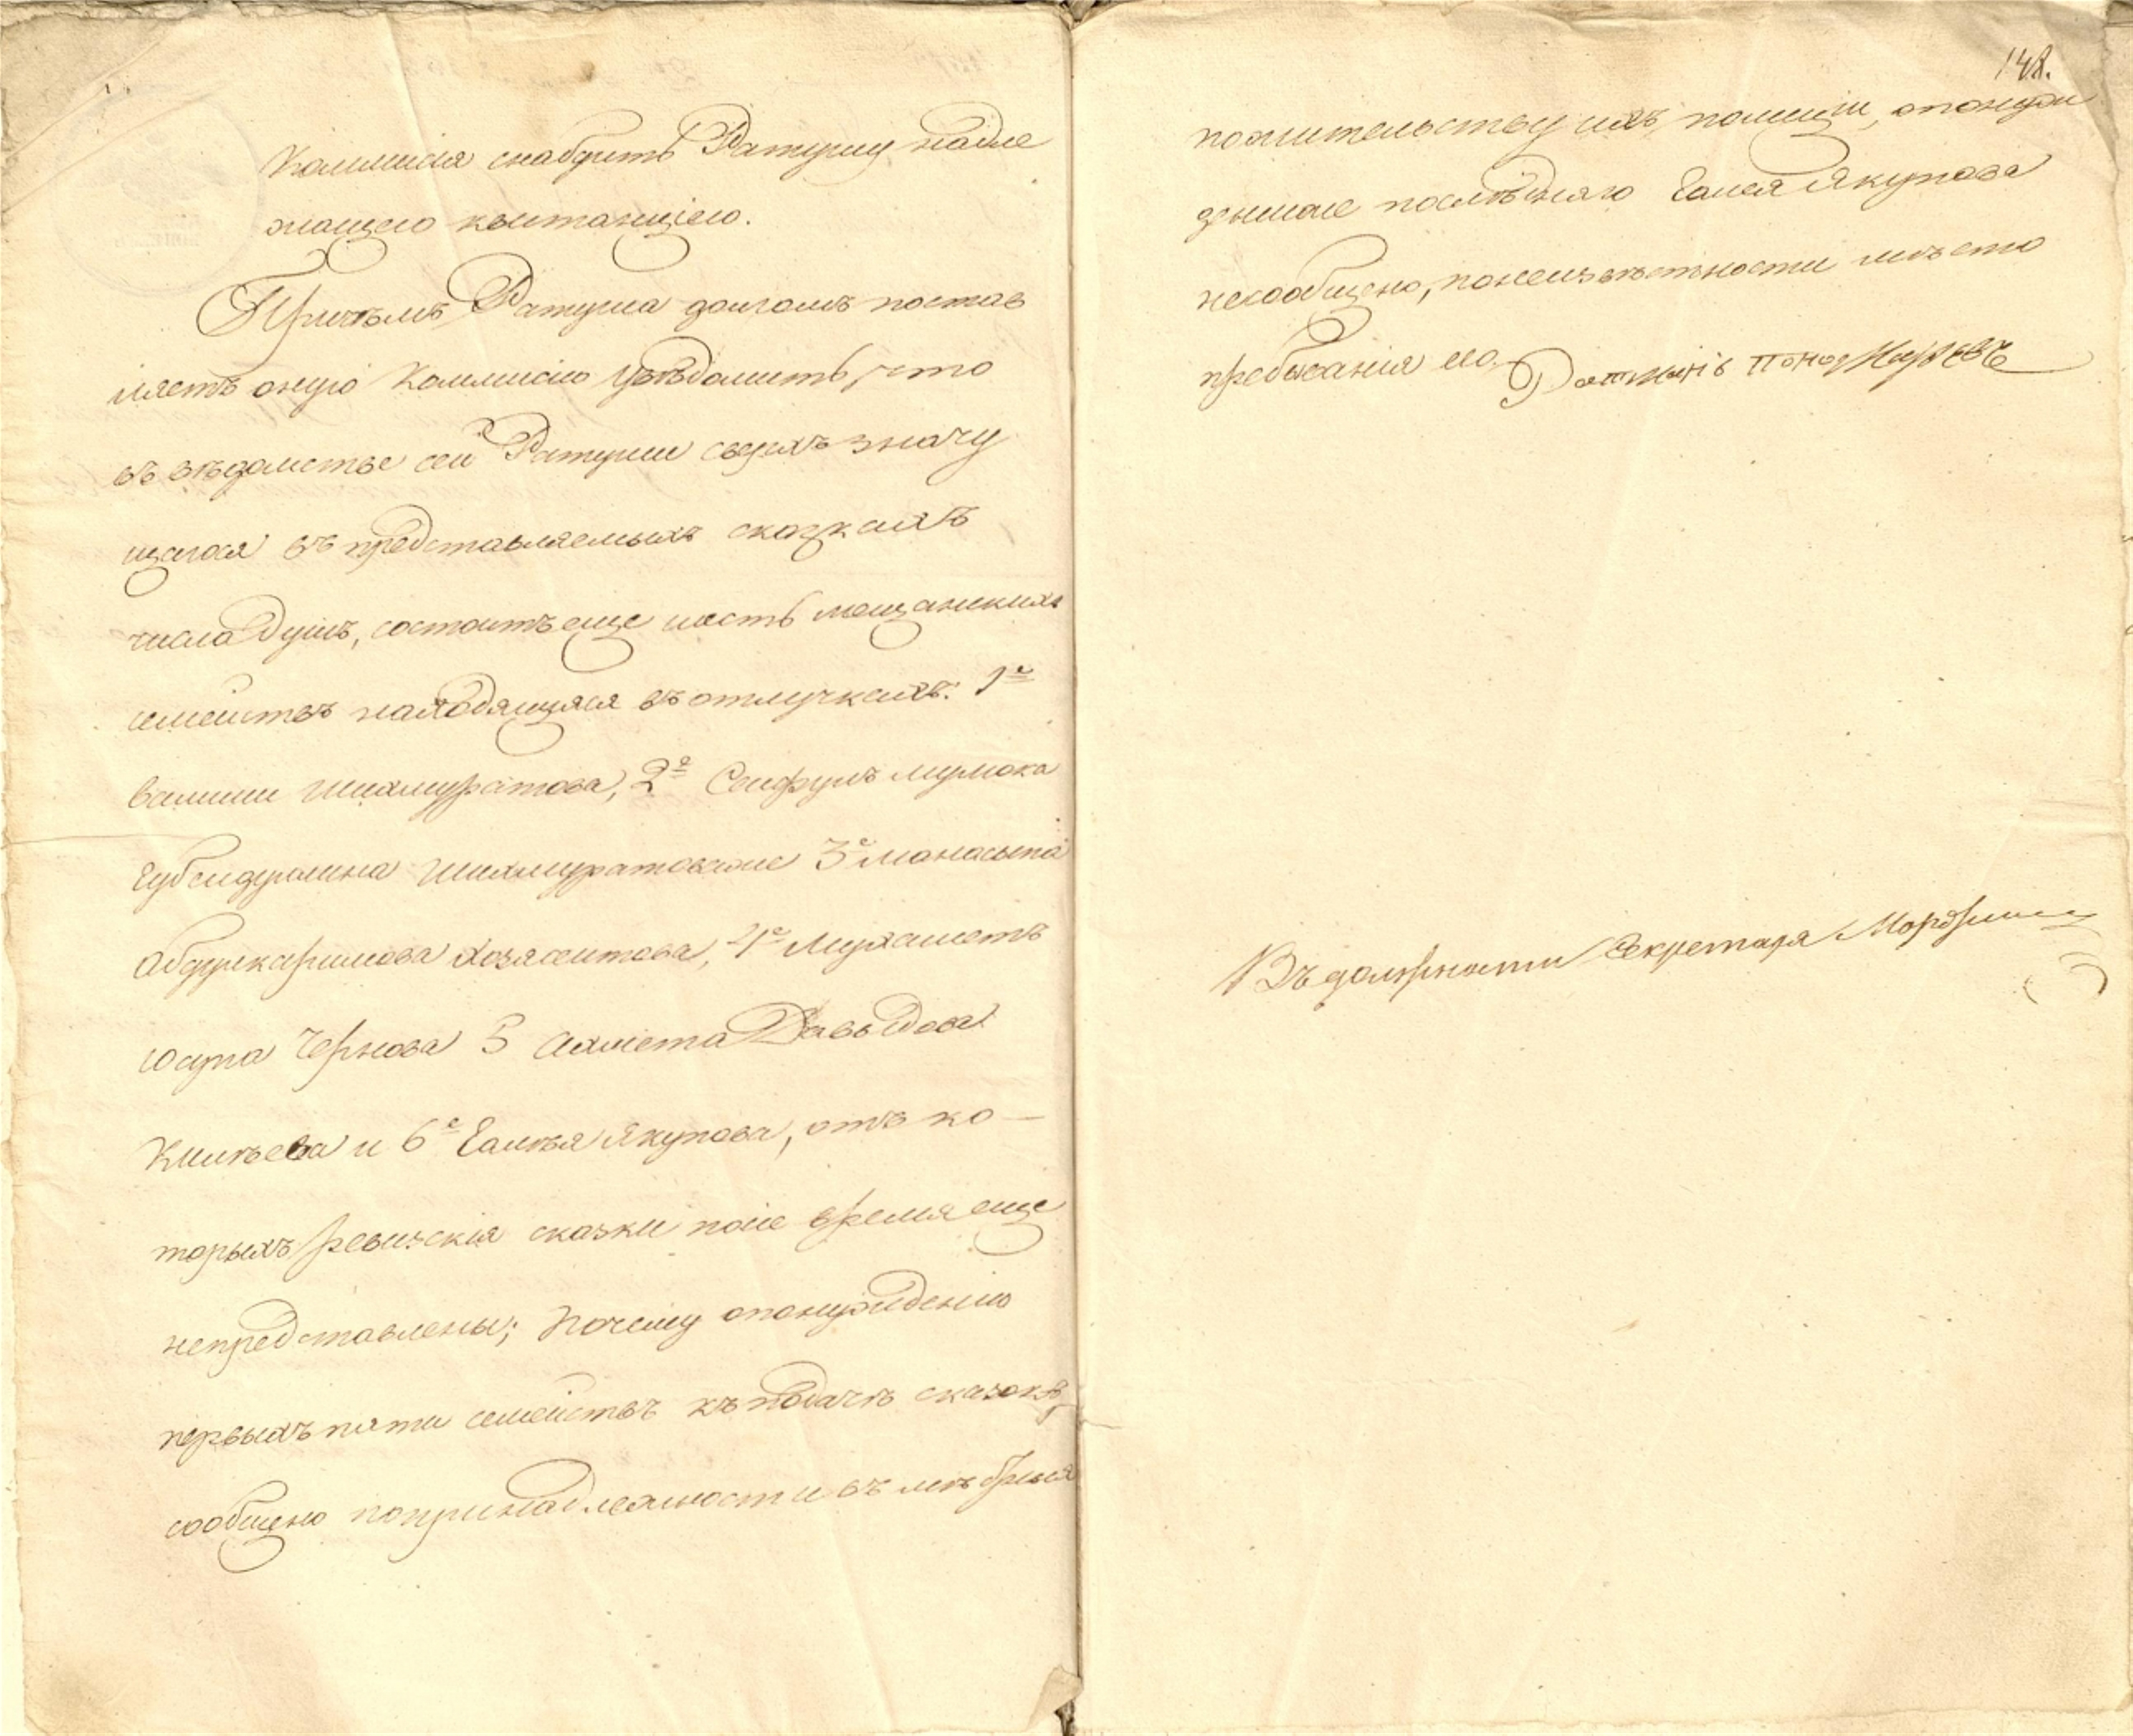 Коммисія снабдить Ратушу надле
жащею квитанціею.
Причемъ Ратуша долгомъ постав
ляетъ оную Коммисію увѣдомить, что
въ вѣдомстве сей Ратуши сверхъ значу
щагося въ представляемыхъ сказкахъ
числа душъ, состоитъ еще шесть мещанскихъ
семействъ находящихся въ отлучкахъ: 1е
Валиши Шихмуратова, 2е Сеифулъ мулюка
Губейдулина Шихмуратовыхъ 3е Манасыпа
Абдулкаримова Хозясеитова, 4е Мухаметъ
Юсупа Чернова 5 Ахмета Давыдова
Кинѣева и 6е Галѣя Якупова, отъ ко-
торыхъ ревизскія сказки по сие время еще
непредставлены; Почему опонуждению
первыхъ пяти семействъ къ подачѣ сказокъ,
сообщено попринадлежности въ мѣстныя
148.
пожительству ихъ полиции, опонуж
деніиже послѣдняго Галея Якупова
несообщено, понеизвѣстности мѣсто
пребыванія его. Ратманъ
Въ должности Секретаря